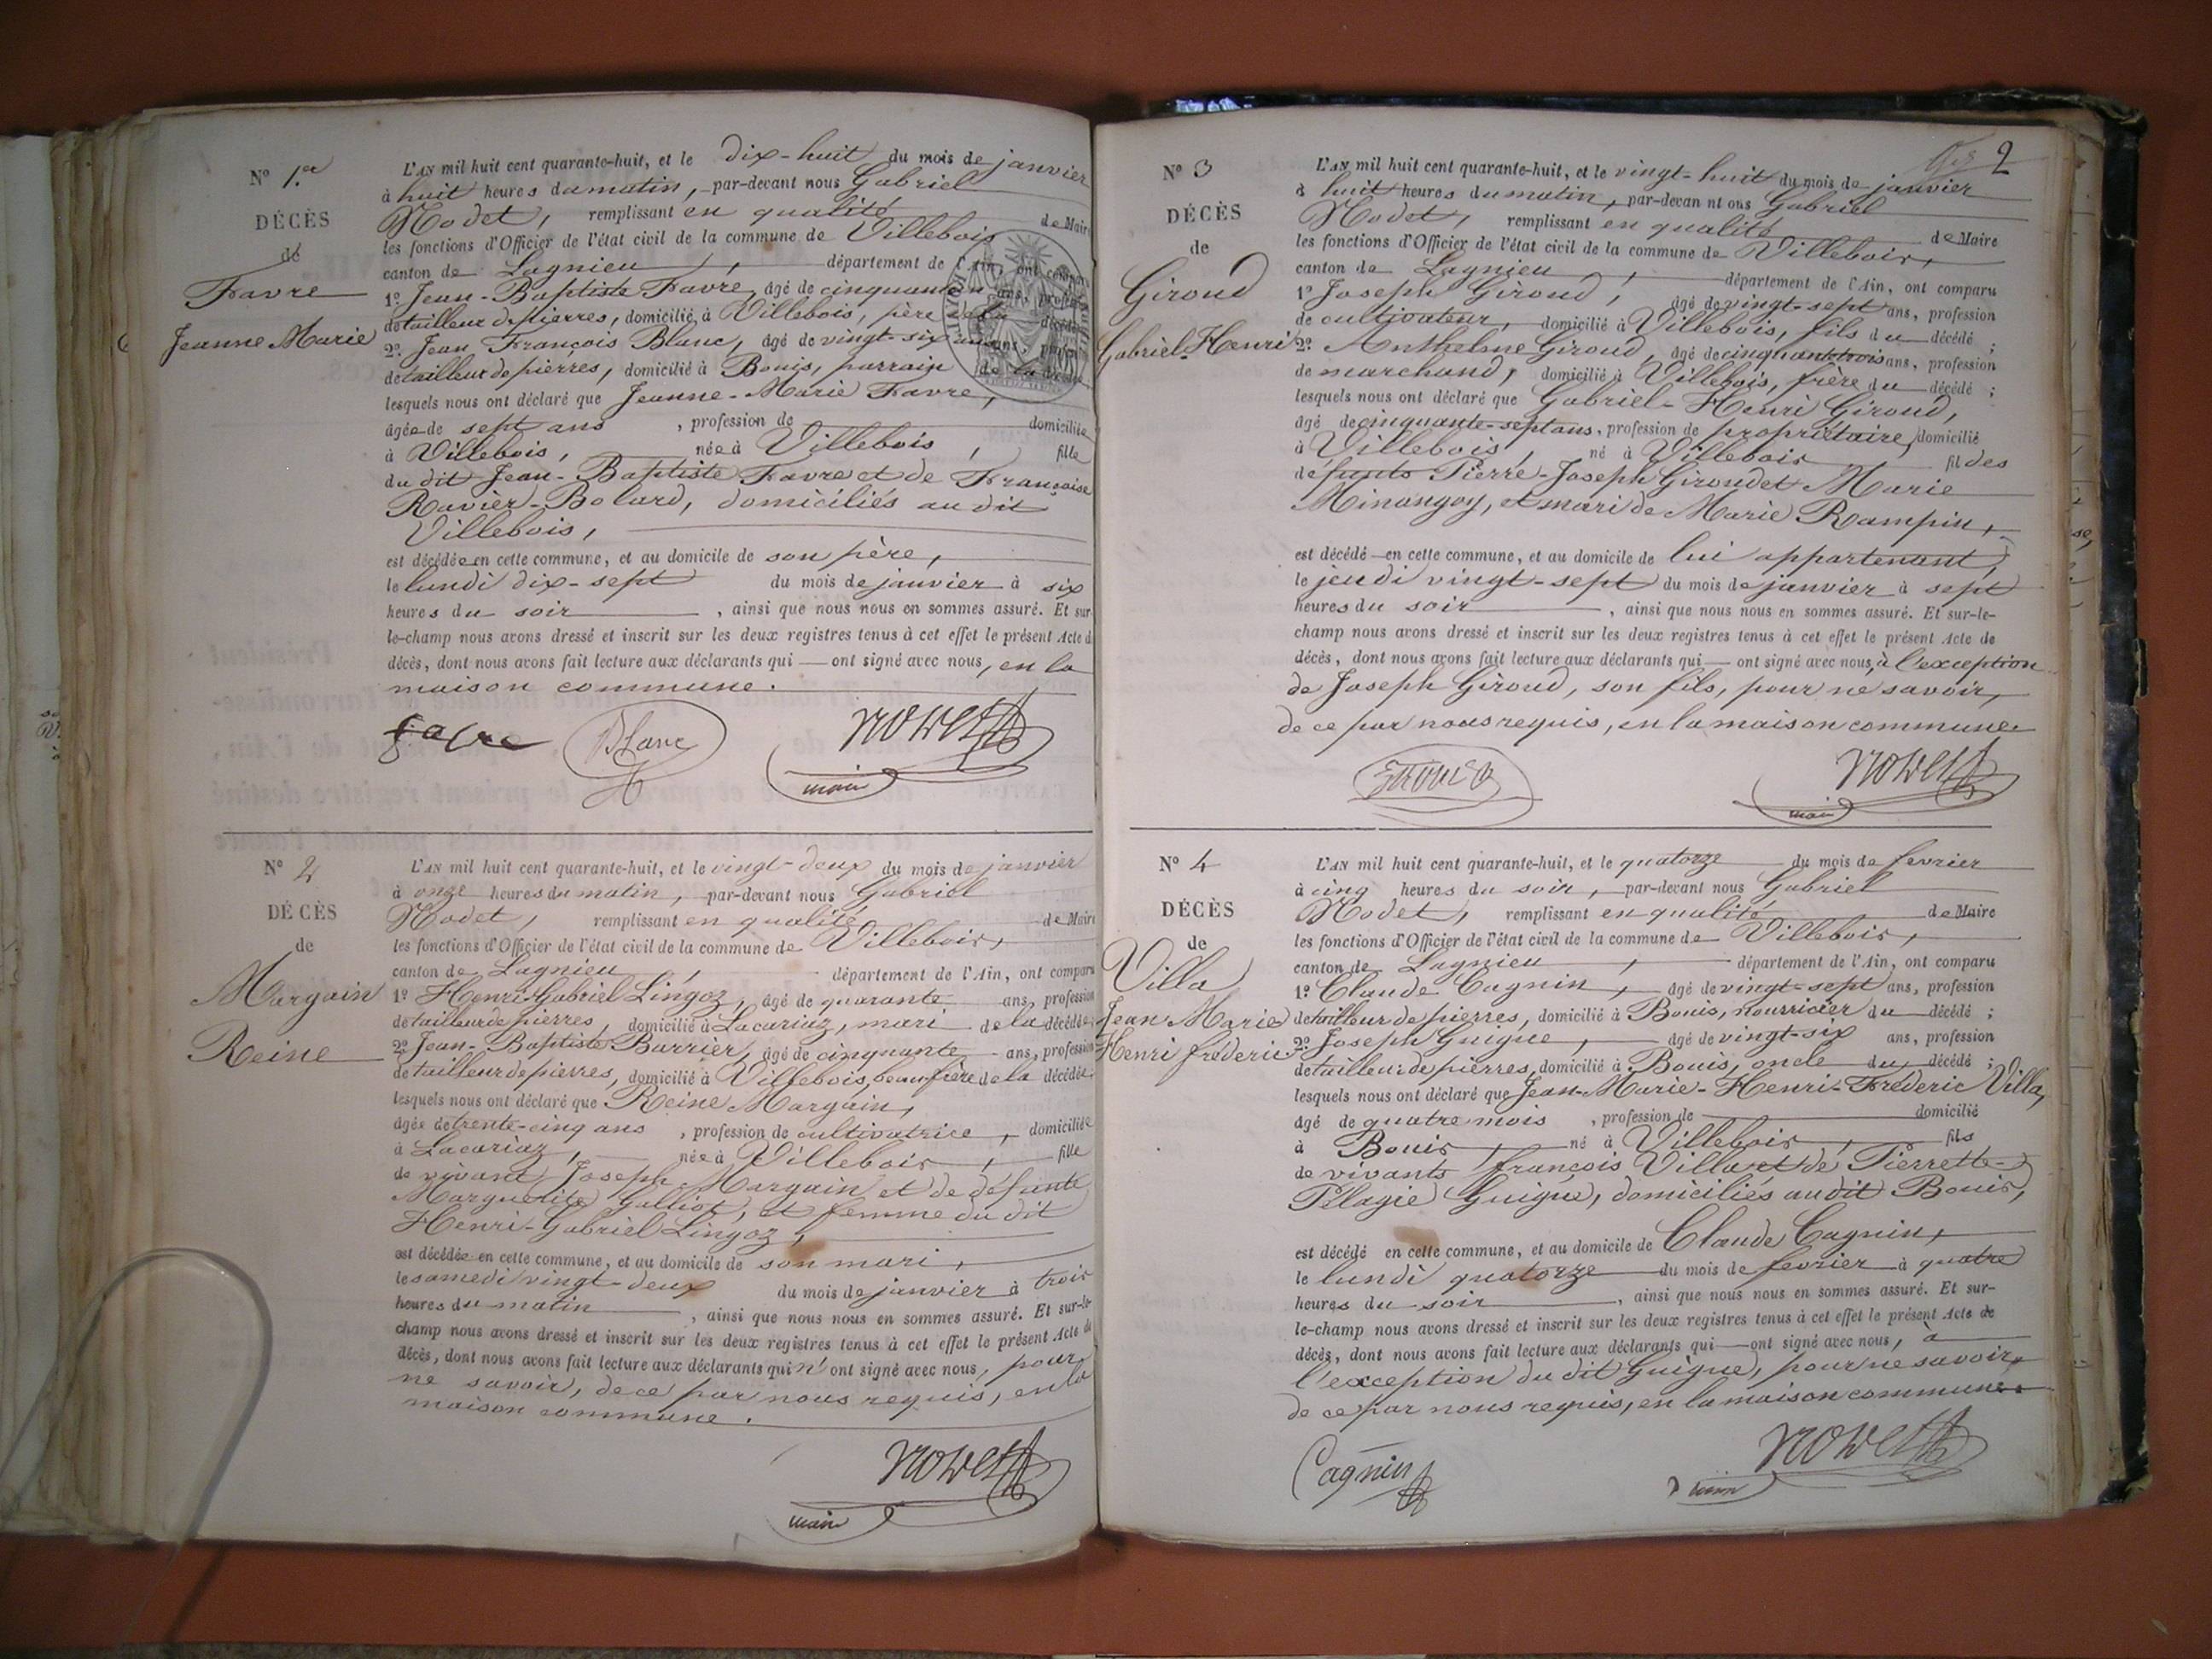 N° 1.er
DÉCÈS
de
Favre
Jeanne Marie
L'AN mil huit cent quarante-huit, et le dix-huit du mois de janvier
à huit heures du matin, par-devant nous Gabriel
Nodet, remplissant en qualité de Maire
les fonctions d'Officier de l'état civil de la commune de Villebois
canton de Lagnieu, département de l'Ain, ont comparu
1° Jean-Baptiste Favre, âgé de cinquante ans, profession
de tailleur de pierres, domicilié à Villebois, père de la décédée
2° Jean François Blanc, âgé de vingt-six ans, profession
de tailleur de pierres, domicilié à Bouis, parrain de la décédée
lesquels nous ont déclaré que Jeanne-Marie Favre,
âgée de sept ans, profession de domiciliée
à Villebois, née à Villebois, fille
du dit Jean-Baptiste Favre et de Françoise
Ravier-Bolard, domiciliés au dit
Villebois,
est décédée en cette commune, et au domicile de son père,
le lundi dix-sept du mois de janvier à six
heures du soir, ainsi que nous nous en sommes assuré. Et sur-
le-champ nous avons dressé et inscrit sur les deux registres tenus à cet effet le présent Acte de
décès, dont nous avons fait lecture aux déclarants qui ont signé avec nous, en la
maison commune.
favre Blanc Nodet
maire
N° 2
DÉCÈS
de
Margain
Reine
L'AN mil huit cent quarante-huit, et le vingt-deux du mois de janvier
à onze heures du matin, par-devant nous Gabriel
Nodet, remplissant en qualité de Maire
les fonctions d'Officier de l'état civil de la commune de Villebois,
canton de Lagnieu, département de l'Ain, ont comparu
1° Henri-Gabriel Lingoz, âgé de quarante ans, profession
de tailleur de pierres, domicilié à Lacariaz, mari de la décédée;
2° Jean-Baptiste Barrier, âgé de cinquante ans, profession
de tailleur de pierres, domicilié à Villebois, beau frère de la décédée
lesquels nous ont déclaré que Reine Margain,
âgée de trente-cinq ans, profession de cultivatrice, domiciliée
à Lacariaz, née à Villebois, fille
de vivant Joseph Margain et de défunte
Marguerite Galliot, et femme du dit
Henri-Gabriel Lingoz,
est décédée en cette commune, et au domicile de son mari,
le samedi vingt-deux du mois de janvier à trois
heures du matin, ainsi que nous nous en sommes assuré. Et sur-le-
champ nous avons dressé et inscrit sur les deux registres tenus à cet effet le présent Acte de
décès, dont nous avons fait lecture aux déclarants qui n'ont signé avec nous, pour
ne savoir, de ce par nous requis, en la
maison commune.
Nodet
maire
2
N° 3
DÉCÈS
de
Giroud
Gabriel-Henri
L'AN mil huit cent quarante-huit, et le vingt-huit du mois de janvier
à huit heures du matin, par-devan nt ous Gabriel
Nodet, remplissant en qualité de Maire
les fonctions d'Officier de l'état civil de la commune de Villebois,
canton de Lagnieu, département de l'Ain, ont comparu
1° Joseph Giroud, âgé de vingt-sept ans, profession
de cultivateur, domicilié à Villebois, fils du décédé;
2° Anthelme Giroud, âgé de cinquante trois ans, profession
de marchand, domicilié à Villebois, frère du décédé;
lesquels nous ont déclaré que Gabriel-Henri Giroud,
âgé de cinquante-sept ans, profession de propriétaire, domicilié
à Villebois, né à Villebois fil des
défunts Pierre-Joseph Giroud et Marie
Minangoy, et mari de Marie Rampin,
est décédé en cette commune, et au domicile de lui appartenant,
le jeudi vingt-sept du mois de janvier à sept
heures du soir, ainsi que nous nous en sommes assuré. Et sur-le-
champ nous avons dressé et inscrit sur les deux registres tenus à cet effet le présent Acte de
décès, dont nous avons fait lecture aux déclarants qui ont signé avec nous, à l'exception
de Joseph Giroud, son fils, pour ne savoir,
de ce par nous requis, en la maison commune
Giroud Nodet
maire
N° 4
DÉCÈS
de
Villa
Jean Marie
Henri frédéric
L'AN mil huit cent quarante-huit, et le quatorze du mois de fevrier
à cinq heures du soir, par-devant nous Gabriel
Nodet, remplissant en qualité de Maire
les fonctions d'Officier de l'état civil de la commune de Villebois,
canton de Lagnieu, département de l'Ain, ont comparu
1° Claude Cagnin, âgé de vingt-sept ans, profession
de tailleur de pierres, domicilié à Bouis, nourricier du décédé;
2° Joseph Guigue, âgé de vingt-six ans, profession
de tailleur de pierres, domicilié à Bouis, oncle du décédé;
lesquels nous ont déclaré que Jean-Marie-Henri-Fréderic Villa,
âgé de quatre mois, profession de domicilié
à Bouis, né à Villebois, fils
de vivants françois Villa et de Pierrette-
Pélagie Guigue, domiciliés au dit Bouis,
est décédé en cette commune, et au domicile de Claude Cagnin,
le lundi quatorze du mois de fevrier à quatre
heures du soir, ainsi que nous nous en sommes assuré. Et sur-
le-champ nous avons dressé et inscrit sur les deux registres tenus à cet effet le présent Acte de
décès, dont nous avons fait lecture aux déclarants qui ont signé avec nous, à
l'exception du dit Guigue, pour ne savoir,
de ce par nous requis, en la maison commune.
Cagnin Nodet
maire